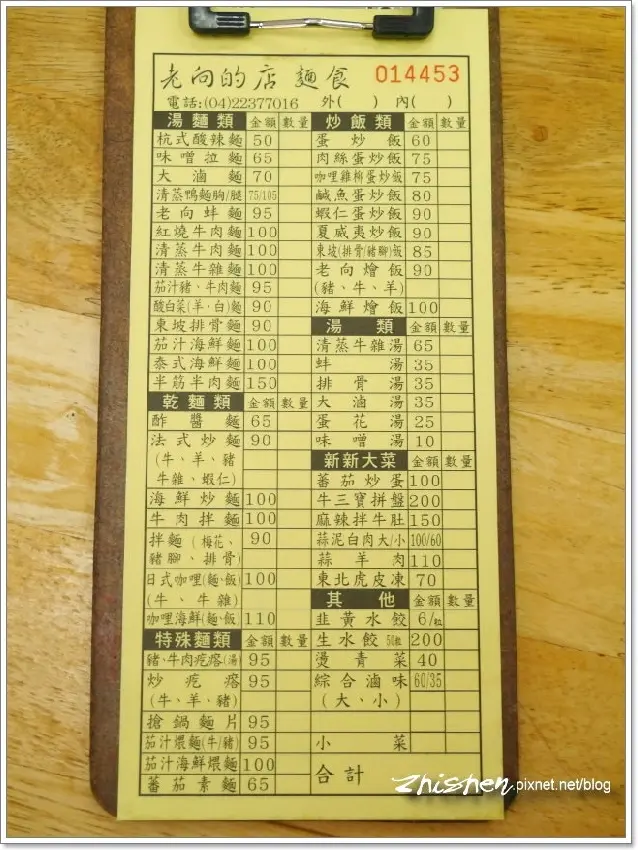 老向的店 麵食 014453
電話:(04)22377016 外( ) 內( )
湯麵類 金額 數量
杭式酸辣麵 50
味噌拉麵 65
大滷麵 70
清蒸鴨麵胸/腿 75/105
老向蚌麵 95
紅燒牛肉麵 100
清蒸牛肉麵 100
清蒸牛雜麵 100
茄汁豬、牛肉麵 95
酸白菜(羊、白)麵 90
東坡排骨麵 90
茄汁海鮮麵 100
泰式海鮮麵 100
半筋半肉麵 150
乾麵類 金額 數量
酢醬麵 65
法式炒麵 90
(牛、羊、豬
牛雜、蝦仁)
海鮮炒麵 100
牛肉拌麵 100
拌麵(梅花、 90
豬腳、排骨)
日式咖哩(麵、飯) 100
(牛、牛雜)
咖哩海鮮(麵、飯) 110
特殊麵類 金額 數量
豬、牛肉疙瘩(湯) 95
炒疙瘩 95
(牛、羊、豬)
搶鍋麵片 95
茄汁煨麵(牛/豬) 95
茄汁海鮮煨麵 100
蕃茄素麵 65
炒飯類 金額 數量
蛋炒飯 60
肉絲蛋炒飯 75
咖哩雞柳蛋炒飯 75
鹹魚蛋炒飯 80
蝦仁蛋炒飯 90
夏威夷炒飯 90
東坡(排骨/豬腳)飯 85
老向燴飯 90
(豬、牛、羊)
海鮮燴飯 100
湯類 金額 數量
清蒸牛雜湯 65
蚌湯 35
排骨湯 35
大滷湯 35
蛋花湯 25
味噌湯 10
新新大菜 金額 數量
蕃茄炒蛋 100
牛三寶拼盤 200
麻辣拌牛肚 150
蒜泥白肉大/小 100/60
蒜羊肉 110
東北虎皮凍 70
其他 金額 數量
韭黃水餃 6/粒
生水餃 50粒 200
燙青菜 40
綜合滷味 60/35
(大、小)
小菜
合計
zhishen.pixnet.net/blog